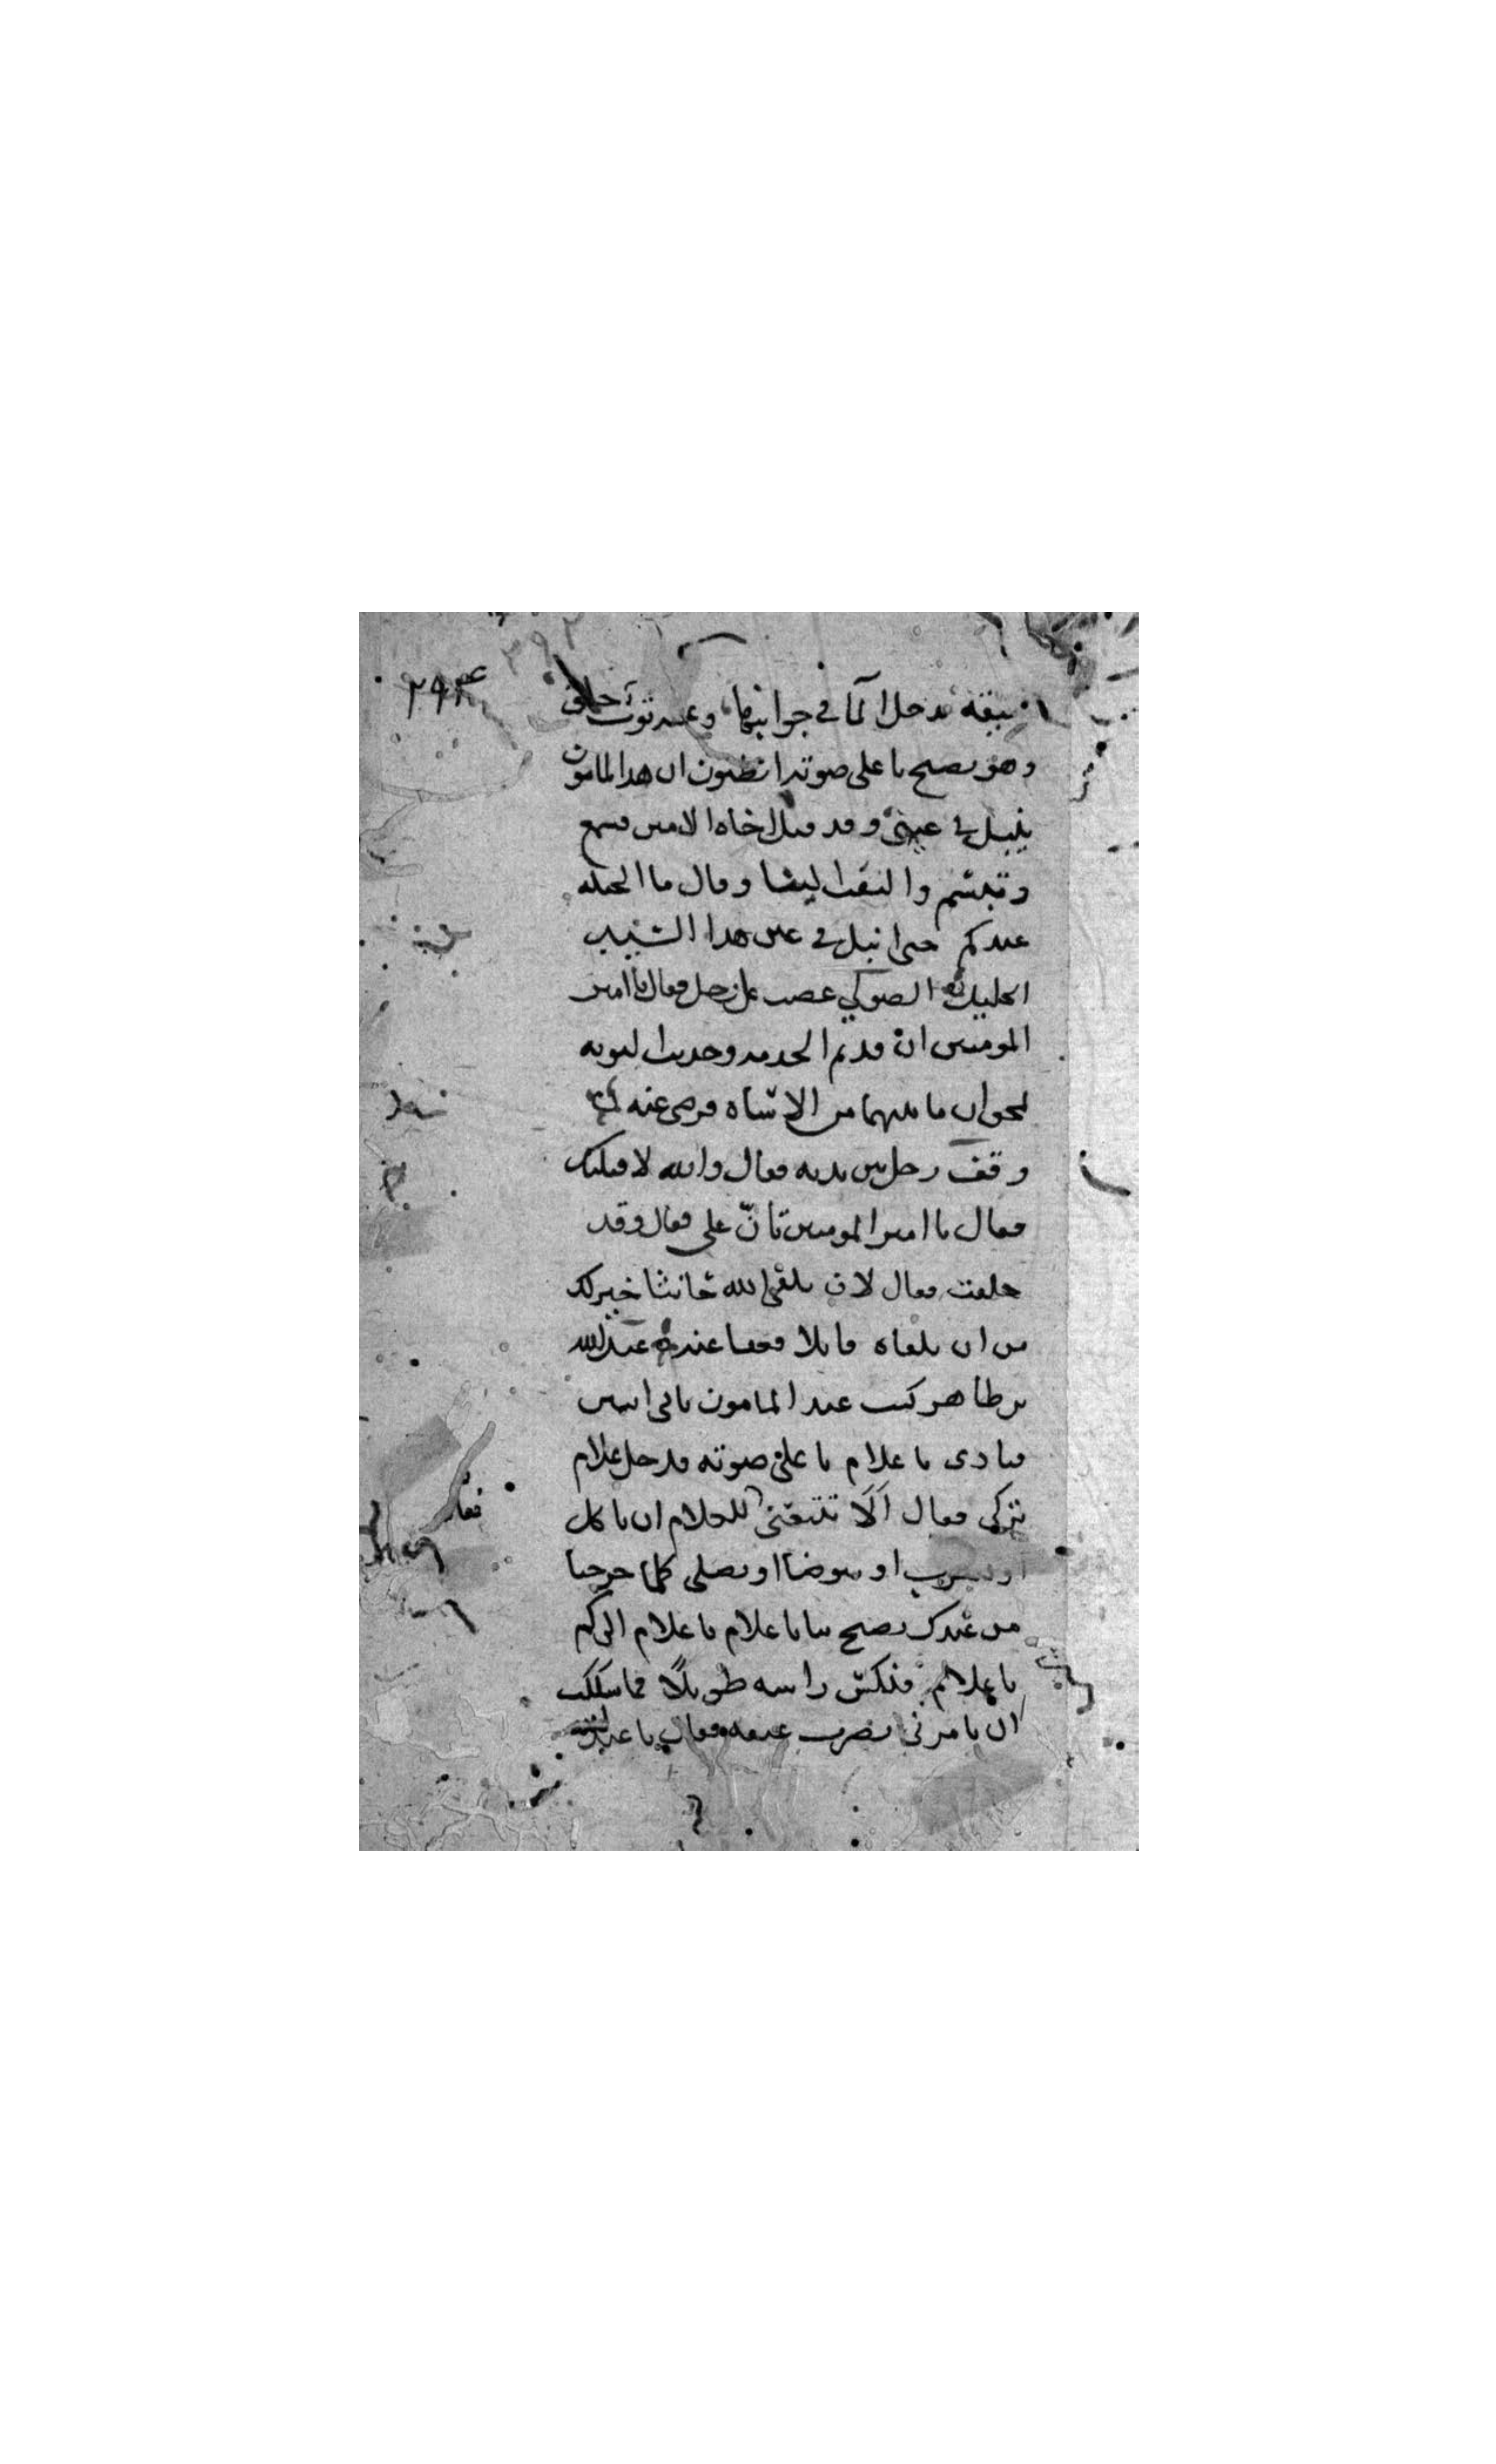 ٢٩٣
ضيقة يدخل الما في جوانبها وعبر توتي خلق
وهو يصيح باعلى صوته اتظنون ان هذا المامون
ينبل في عيني وقد قتل اخاه الامين فسمع
وتبسم والتفت الينا وقال ما الحيلة
عندكم حتى انبل في عين هذا الشيخ
الجليل الصولي غضب على رجل فقال يا امير
المومنين ان قديم الحرمه وحديث التوبه
يمحوان ما بينهما من الاساه فرضي عنه
وقف رجل بين يديه فقال والله لاقتلنك
فقال يا امير المومنين تان علي فقال وقد
حلفت فقال لان تلقى الله حانثا خير لك
من ان تلقاه قاتلا فعفا عنه عبد الله
بن طاهر كنت عند المامون ثاني اثنين
فنادى يا غلام يا على صوته فدخل غلام
تركي فقال الا ينبغي للغلام ان ياكل
او يشرب او يتوضا او يصلي كلما خرجنا
من عندك تصيح بنا يا غلام يا غلام الى كم
يا غلام فنكس راسه طويلا فما شككت
ان يامرني بضرب عنقه فقال يا عبد الله